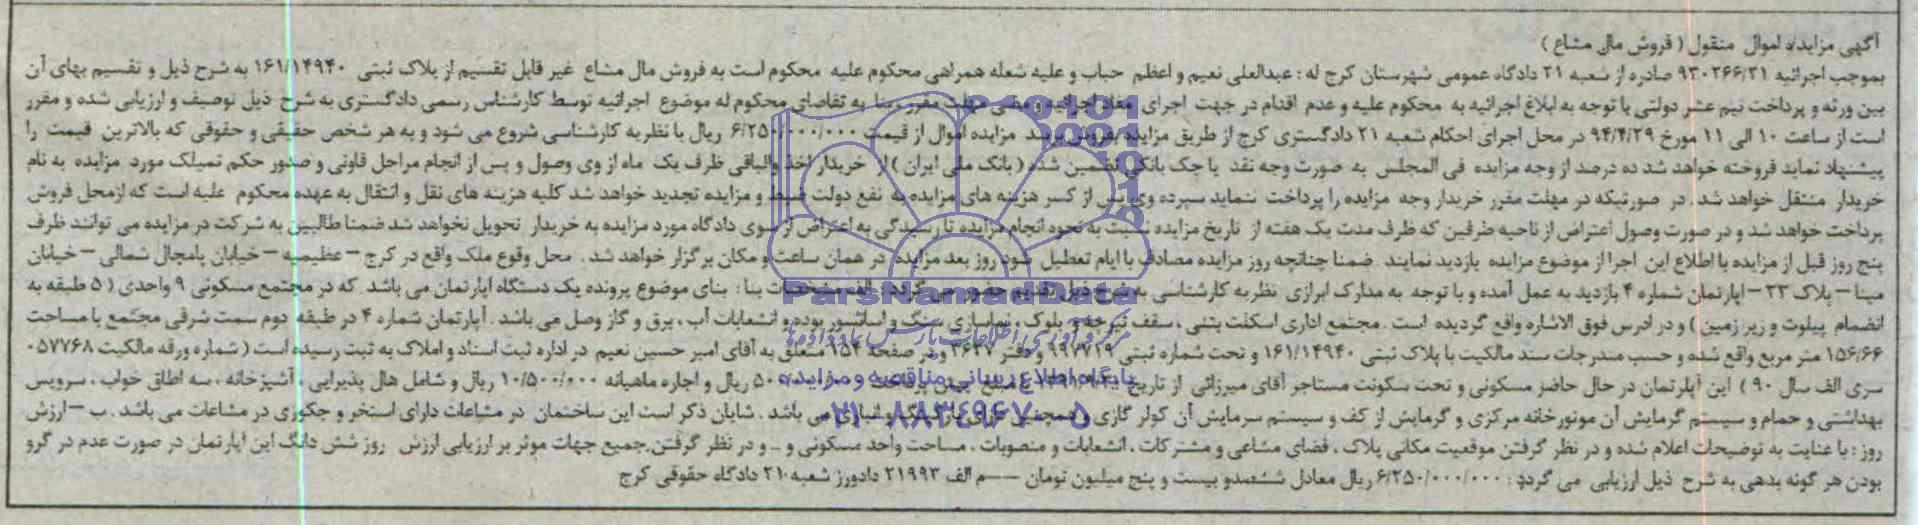 آگهی مزایده اموال منقول ( فروش مال مشاع )
بموجب اجرائیه ۹۳۰۲۶۶/۲۱ صادره از شعبه ۲۱ دادگاه عمومی شهرستان کرج له : عبدالعلی نعیم و اعظم حباب و علیه شعله همراهی محکوم علیه محکوم است به فروش مال مشاع غیر قابل تقسیم از پلاک ثبتی ۱۶۱/۱۴۹۴۰ به شرح ذیل و تقسیم بهای آن
بین ورثه و پرداخت نیم عشر دولتی با توجه به ابلاغ اجرائیه به محکوم علیه و عدم اقدام در جهت اجرای مفاد اجرائیه و مضی مهلت مقرر بنا به تقاضای محکوم له موضوع اجرائیه توسط کارشناس رسمی دادگستری به شرح ذیل توصیف و ارزیابی شده و مقرر
است از ساعت ۱۰ الی ۱۱ مورخ ۹۴/۴/۲۹ در محل اجرای احکام شعبه ۲۱ دادگستری کرج از طریق مزایده بفروش برسد مزایده اموال از قیمت ۶/۲۵۰/۰۰۰/۰۰۰ ریال با نظریه کارشناسی شروع می شود و به هر شخص حقیقی و حقوقی که بالاترین قیمت را
پیشنهاد نماید فروخته خواهد شد ده درصد از وجه مزایده فی المجلس به صورت وجه نقد یا چک بانکی تضمین شده ( بانک ملی ایران ) از خریدار اخذ والباقی ظرف یک ماه از وی وصول و پس از انجام مراحل قانونی و صدور حکم تملیک مورد مزایده به نام
خریدار منتقل خواهد شد . در صورتیکه در مهلت مقرر خریدار وجه مزایده را پرداخت ننماید سپرده وی پس از کسر هزینه های مزایده به نفع دولت ضبط و مزایده تجدید خواهد شد کلیه هزینه های نقل و انتقال به عهده محکوم علیه است که از محل فروش
پرداخت خواهد شد و در صورت وصول اعتراض از ناحیه طرفین که ظرف مدت یک هفته از تاریخ مزایده نسبت به نحوه انجام مزایده تا رسیدگی به اعتراض از سوی دادگاه مورد مزایده به خریدار تحویل نخواهد شد ضمنا طالبین به شرکت در مزایده می توانند ظرف
پنج روز قبل از مزایده با اطلاع این اجرا از موضوع مزایده بازدید نمایند ضمنا چنانچه روز مزایده مصادف با ایام تعطیل شود روز بعد مزایده در همان ساعت و مکان برگزار خواهد شد . محل وقوع ملک واقع در کرج – عظیمیه – خیابان پامچال شمالی – خیابان
مینا – پلاک ۳۳ – اپارتمان شماره ۴ بازدید به عمل آمده و با توجه به مدارک ابرازی نظریه کارشناسی به شرح ذیل تقدیم حضور می گردد . الف مشخصات بنا : بنای موضوع پرونده یک دستگاه اپارتمان می باشد که در مجتمع مسکونی ۹ واحدی ( ۵ طبقه به
انضمام پیلوت و زیر زمین ) و در ادرس فوق الاشاره واقع گردیده است . مجتمع اداری اسکلت بتنی ، سقف تیرچه و بلوک ، نماسازی سنگ و اسانسور بوده و انشعابات آب ، برق و گاز وصل می باشد . آپارتمان شماره ۴ در طبقه دوم سمت شرقی مجتمع با مساحت
۱۵۶/۶۶ متر مربع واقع شده و حسب مندرجات سند مالکیت با پلاک ثبتی ۱۶۱/۱۴۹۴۰ و تحت شماره ثبتی ۹۹۷۷۲۹ و دفتر ۳۶۲۷ و در صفحه ۱۵۴ متعلق به آقای امیر حسین نعیم در اداره ثبت اسناد و املاک به ثبت رسیده است ( شماره ورقه مالکیت ۰۵۷۷۶۸
سری الف سال ۹۰ ) این آپارتمان در حال حاضر مسکونی و تحت سکونت مستاجر آقای میرزائی از تاریخ ریال و اجاره ماهیانه ۱۰/۵۰۰/۰۰۰ ریال و شامل هال پذیرایی ، آشپزخانه ، سه اطاق خواب ، سرویس
بهداشتی و حمام و سیستم گرمایش آن موتورخانه مرکزی و گرمایش از کف و سیستم سرمایش آن کولر گازی و همچنین دارای پارکینگ و انباری می باشد . شایان ذکر است این ساختمان در مشاعات دارای استخر و جکوزی در مشاعات می باشد . ب – ارزش
روز : با عنایت به توضیحات اعلام شده و در نظر گرفتن موقعیت مکانی پلاک ، فضای مشاعی و مشترکات ، انشعابات و منصوبات ، مساحت واحد مسکونی و .. و در نظر گرفتن جمیع جهات موثر بر ارزیابی ارزش روز شش دانگ این اپارتمان در صورت عدم در گرو
بودن هر گونه بدهی به شرح ذیل ارزیابی می گردد : ۶/۲۵۰/۰۰۰/۰۰۰ ریال معادل ششصدو بیست و پنج میلیون تومان ––– م الف ۲۱۹۹۳ دادورز شعبه ۲۱۰ دادگاه حقوقی کرج
ParsNamadData
مرکز فرآوری اطلاعات پارس نماد داده ها
پایگاه اطلاع رسانی مناقصه و مزایده
۰۲۱-۸۸۳۴۹۶۷۰-۵